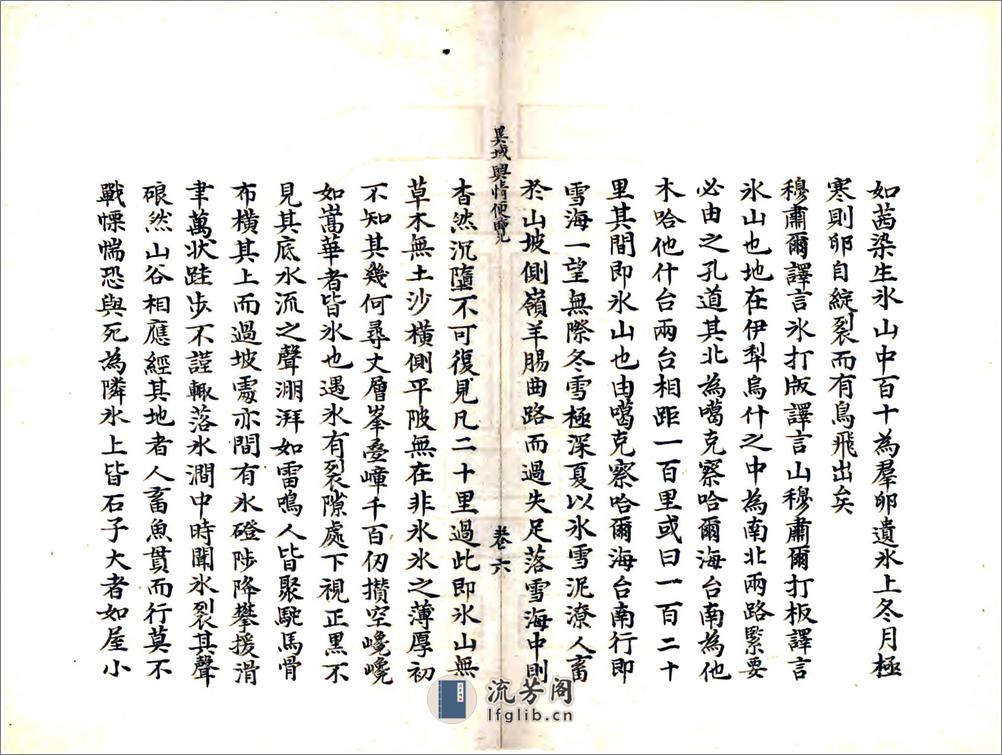 如茜染生氷山中百十為羣卵遺氷上冬月極
寒則卵自綻裂而有鳥飛出矣
穆肅爾譯言氷打版譯言山穆肅爾打板譯言
氷山也地在伊犁烏什之中為南北兩路緊要
必由之孔道其北為噶克察哈爾海台南為他
木哈他什台兩台相距一百里或曰一百二十
里其間即氷山也由噶克察哈爾海台南行即
雪海一望無際冬雪極深夏以氷雪泥潦人畜
於山坡側嶺羊腸曲路而過失足落雪海中則
異域輿情便覽
卷六
杳然沉墮不可復見凡二十里過此即氷山無
草木無土沙橫側平陂無在非氷氷之薄厚初
不知其幾何尋丈層峯疊嶂千百仞攢空巉巉
如嵩華者皆氷也遇氷有裂隙處下視正黑不
見其底水流之聲淜湃如雷鳴人皆聚駝馬骨
布橫其上而過坡處亦間有氷磴陟降攀援滑
聿萬狀跬步不謹輙落氷澗中時聞氷裂其聲
硠然山谷相應經其地者人畜魚貫而行莫不
戰慄惴恐與死為隣氷上皆石子大者如屋小
流芳阁
lfglib.cn